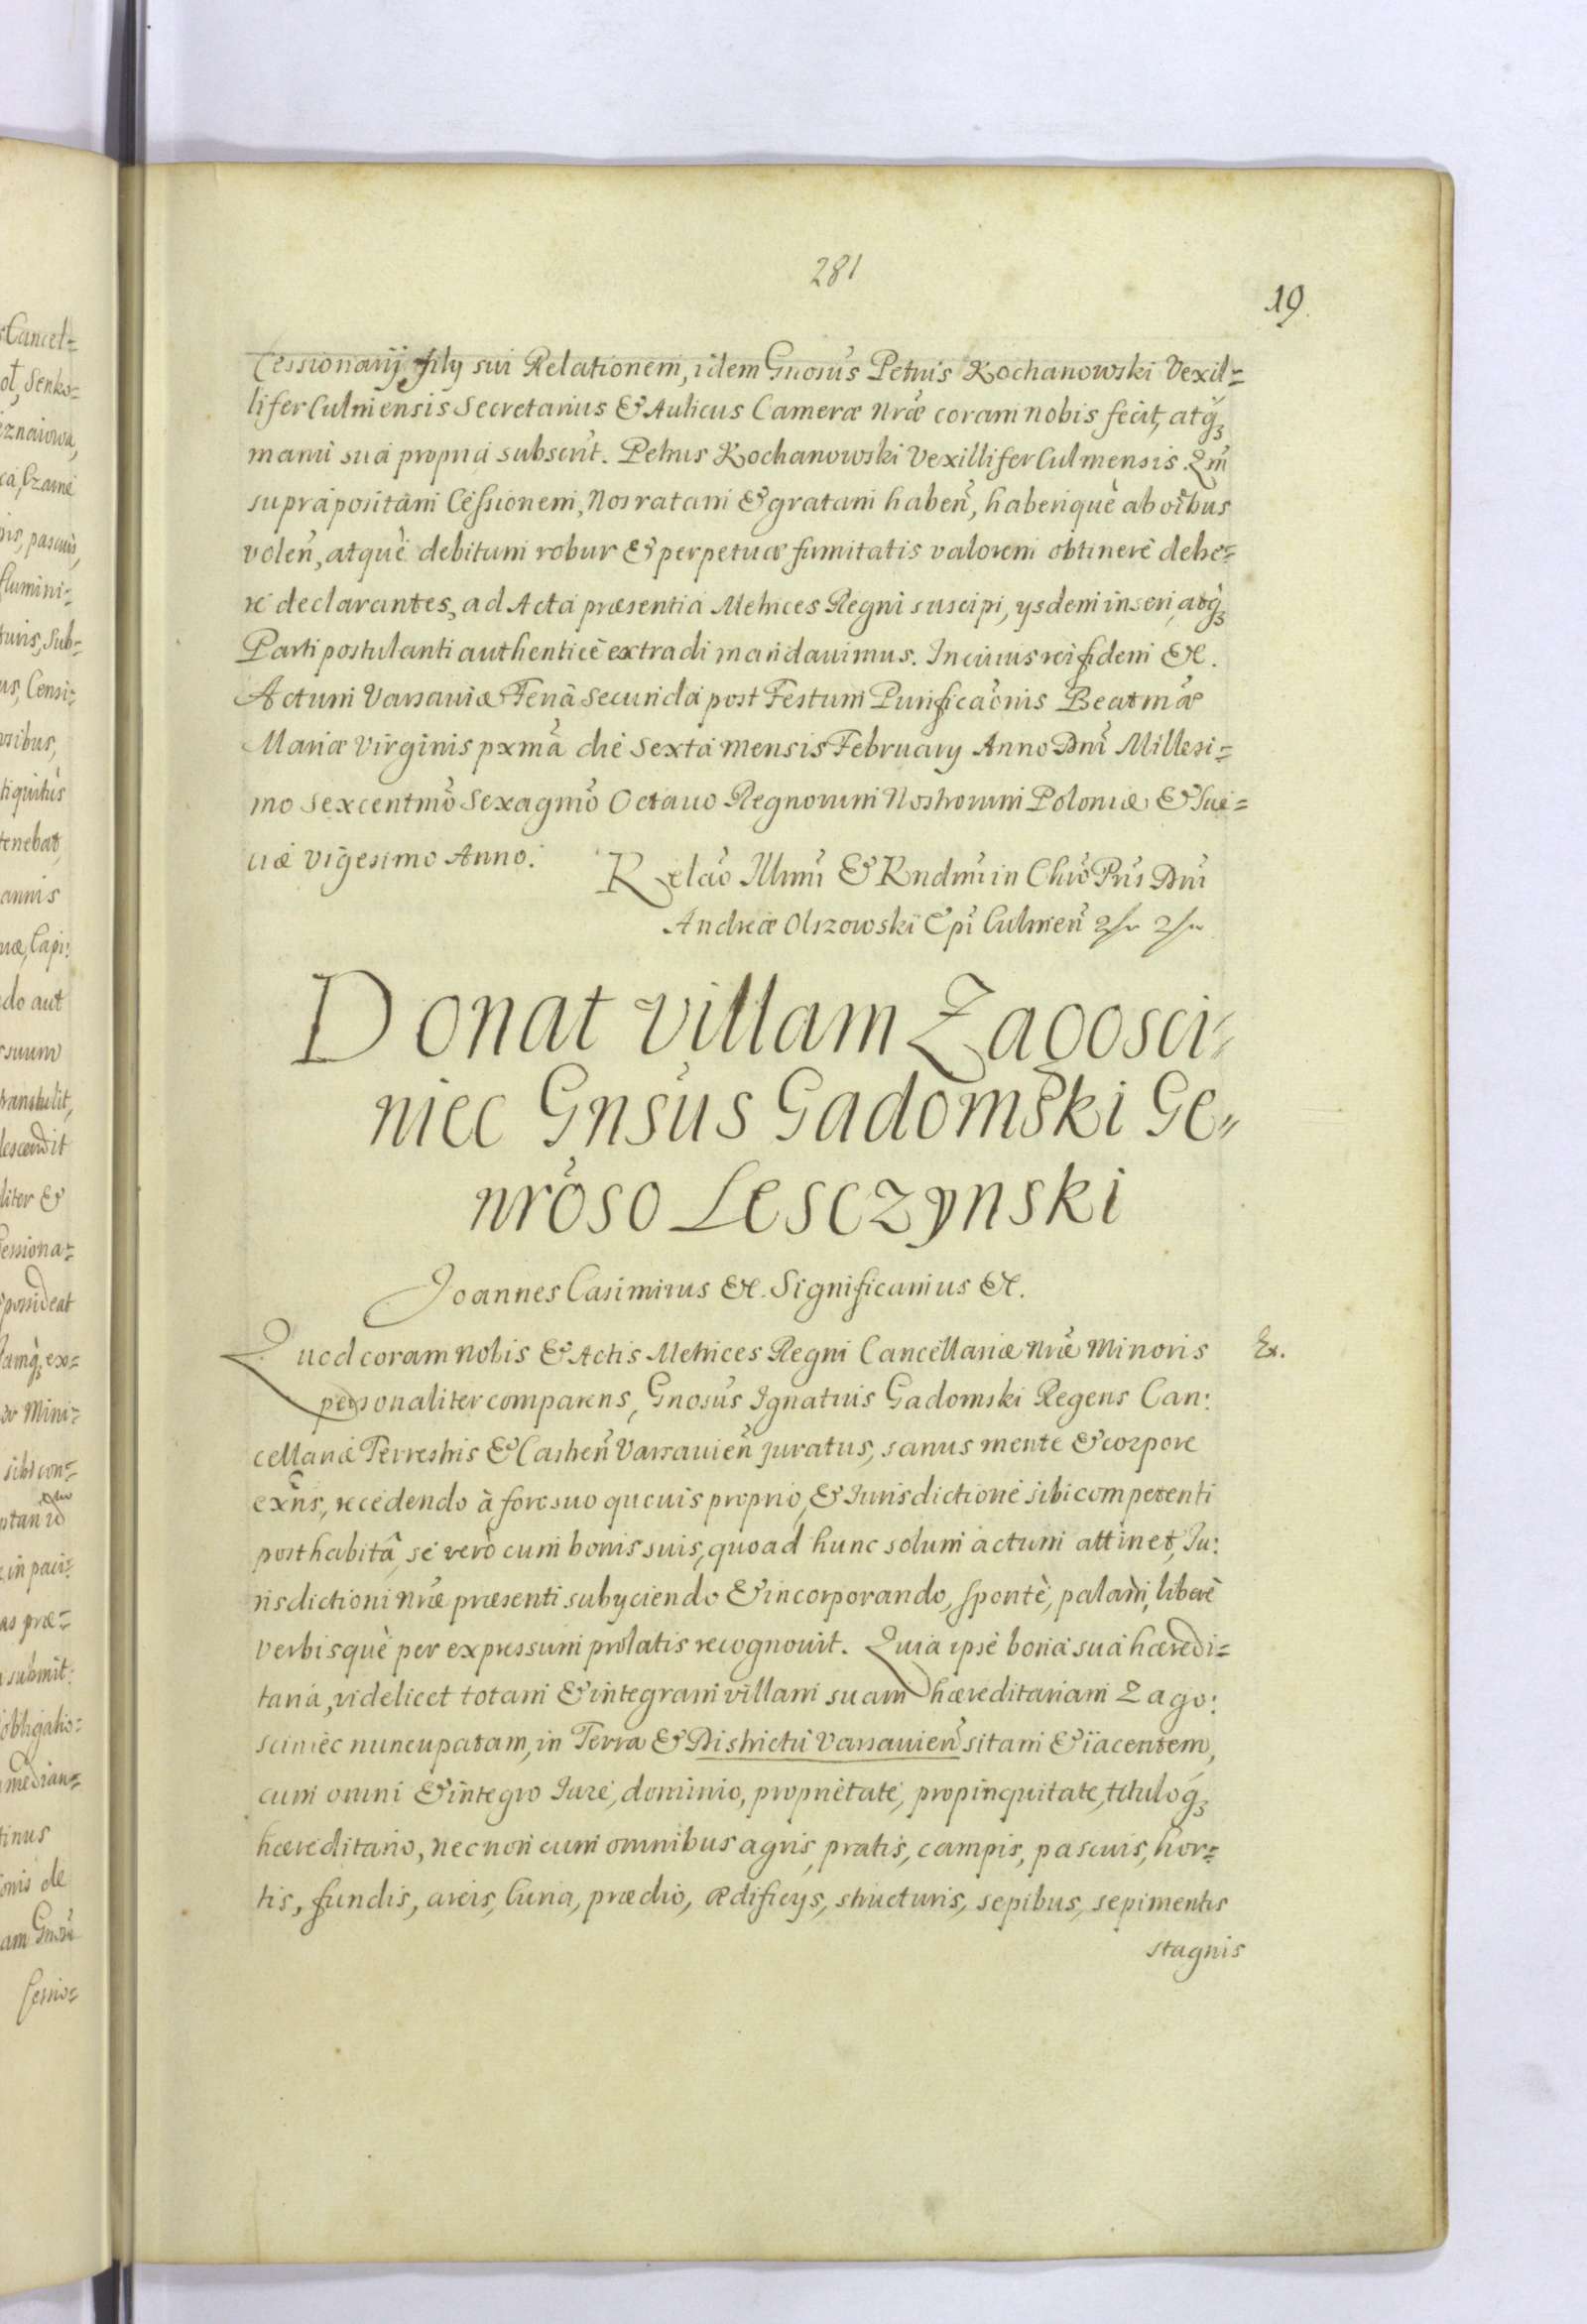 281
19.
Cessionarij filij sui Relationem, idem Gnosus Petrus Kochanowski Vexil=
lifer Culmensis Secretarius & Aulicus Cameræ Nræ coram nobis fecit, atq3
manu sua propria subscrit. Petrus Kochanowski Vexillifer Culmensis Qm
supra positam Cessionem, Nos ratam & gratam haben, haberique ab oibus
volen, atquè debitum robur & perpetuæ firmitatis valorem obtinere debe=
re declarantes, ad Acta præsentia Metrices Regni suscipi, ysdem inseri, atq3
Parti postulanti authenticè extradi mandauimus. In cuius rei fidem &c.
Actum Varsauiæ Feria secunda post Festum Purificaonis Beatmæ
Mariæ Virginis pxma die sexta mensis February Anno Dni Millesi=
mo sexcentmo Sexagmo Octauo Regnorum Nostrorum Poloniæ & Sue=
ciæ vigesimo Anno.
Relao Illmi & Rndmi in Chro Pris Dni
Andreæ Olszowski Epi Culmen
Donat villam Zagosci=
niec Gnsus Gadomski Ge=
nroso Lesczynski
Joannes Casimirus &c. Significamus &c.
Quod coram nobis & Actis Metrices Regni Cancellariæ Nræ Minoris
Ex.
personaliter comparens, Gnosus Ignatius Gadomski Regens Can:
cellariæ Terrestris & Castren Varsauien juratus, sanus mente & corpore
exns, recedendo à foro suo quouis proprio, & Iurisdictione sibi competenti
posthabitâ, se verò cum bonis suis, quoad hunc solum actum attinet, Ju:
risdictioni Nræ præsenti subyciendo & incorporando, spontè, palam, liberè
verbisquè per expressum prolatis recognouit. Quia ipse bona sua hæredi=
taria, videlicet totam & integram villam suam hæreditariam Zago:
sciniec nuncupatam, in Terra & Districtu Varsauien sitam & iacentem,
cum omni & integro Iure, dominio, proprietate, propinquitate, tituloq3
hæreditario, nec non cum omnibus agris, pratis, campis, pascuis, hor=
tis, fundis, areis, Curia, prædio, ædificys, structuris, sepibus, sepimentis
stagnis